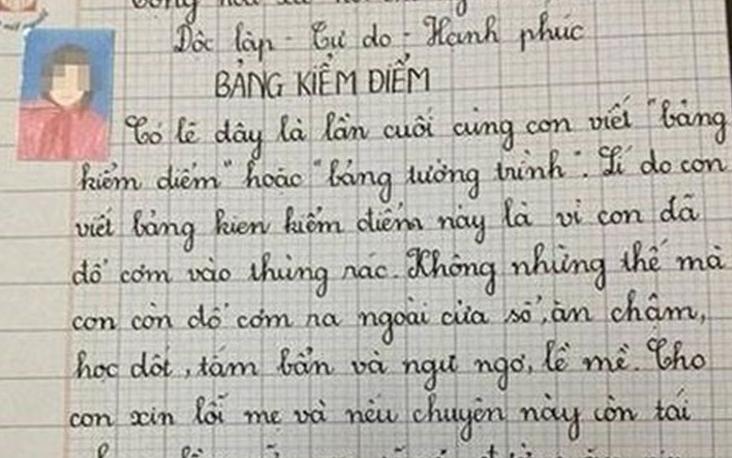 Độc lập - Tự do - Hạnh phúc
BẢNG KIỂM ĐIỂM
Có lẽ đây là lần cuối cùng con viết "bảng
kiểm điểm" hoặc "bảng tường trình". Lí do con
viết bảng kien kiểm điểm này là vì con đã
đổ cơm vào thùng rác. Không những thế mà
con còn đổ cơm ra ngoài cửa sổ, ăn chậm,
học dốt, tắm bẩn và ngu ngơ, lề mề. Cho
con xin lỗi mẹ và nếu chuyện này còn tái